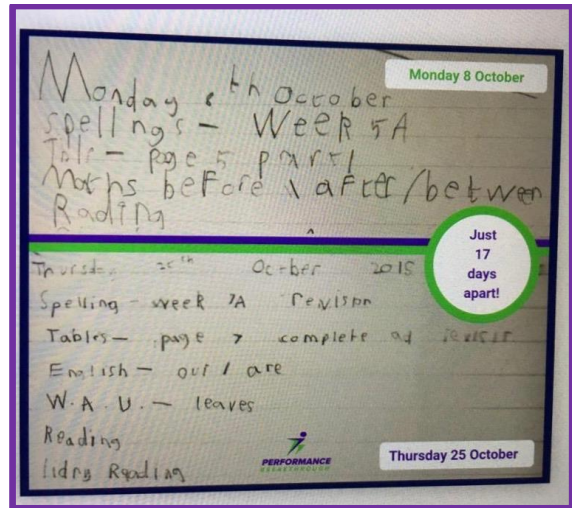 Monday 8 October
Monday 8th October
spellings - Week 5A
page 5 part 1
Maths before / after/between
Rading
Just
17
days
apart!
Thursday 25th October 2018
Spelling - week 7A revision
Tables - page 7 complete ad revisit
English - our / are
W.A.U. - leaves
Reading
Reading
PERFORMANCE
BREAKTHROUGH
Thursday 25 October